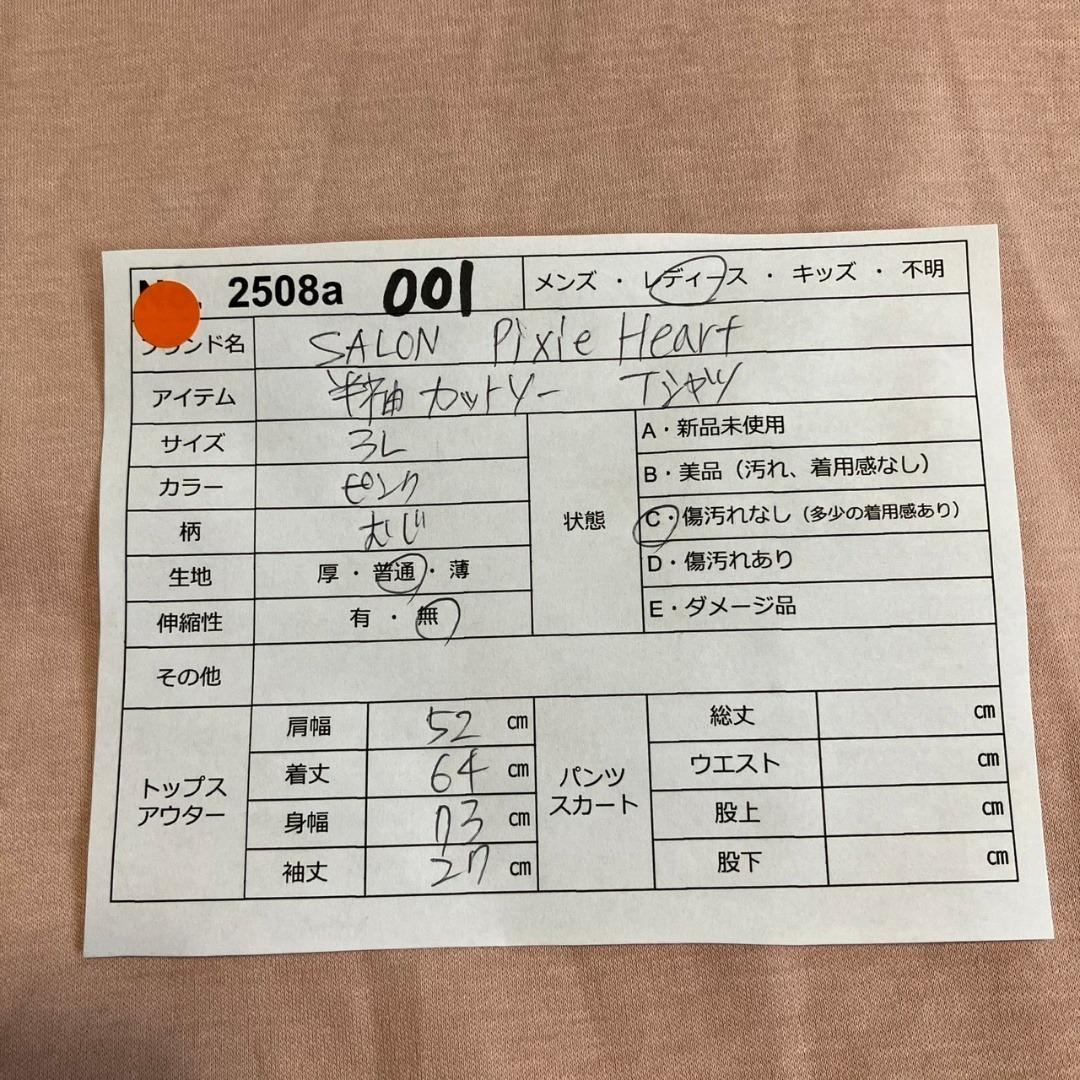 2508a 001 メンズ ・ レディース ・ キッズ ・ 不明
ブランド名 SALON Pixie Heart
アイテム 半袖カットソー Tシャツ
サイズ 3L
カラー ピンク
柄 むじ
生地 厚 ・ 普通 ・ 薄
伸縮性 有 ・ 無
状態
A・新品未使用
B・美品（汚れ、着用感なし）
C・傷汚れなし（多少の着用感あり）
D・傷汚れあり
E・ダメージ品
その他
トップス
アウター
肩幅 52 cm
着丈 64 cm
身幅 73 cm
袖丈 27 cm
パンツ
スカート
総丈 cm
ウエスト cm
股上 cm
股下 cm